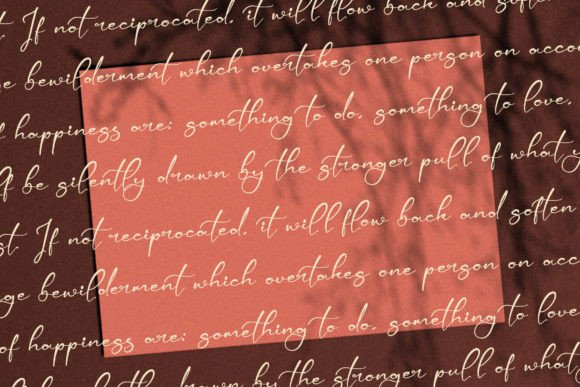 t. If not reciprocated, it will flow back and soften
ge bewilderment which overtakes one person on acco
of happiness are: something to do, something to love,
lf be silently drawn by the stronger pull of what y
st. If not reciprocated, it will flow back and soften
nge bewilderment which overtakes one person on acco
of happiness are: something to do, something to love
be silently drawn by the stronger pull of what